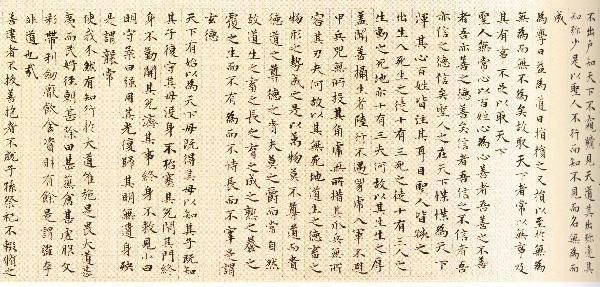 不出戶知天下不窺牖見天道其出弥遠其
知弥少是以聖人不行而知不見而名無為而
成
為學日益為道日損損之又損以至於無為
無為而無不為矣故取天下者常以無事及
其有事不足以取天下
聖人無常心以百姓心為心善者吾善之不善
者吾亦善之德善矣信者吾信之不信者吾
亦信之德信矣聖人之在天下惵惵為天下
渾其心百姓皆注其耳目聖人皆孩之
出生入死生之徒十有三死之徒十有三人之
生動之死地亦十有三夫何故以其生生之厚
蓋聞善攝生者陸行不遇兕虎入軍不避
甲兵兕無所投其角虎無所措其爪兵無所
容其刃夫何故以其無死地道生之德畜之
物形之勢成之是以萬物莫不尊道而貴
德道之尊德之貴夫莫之爵而常自然
故道生之畜之長之育之成之熟之養之
覆之生而不有為而不恃長而不宰是謂
玄德
天下有始以為天下母既得其母以知其子既知
其子復守其母沒身不殆塞其兌閉其門終
身不勤開其兌濟其事終身不救見小曰
明守柔曰強用其光復歸其明無遺身殃
是謂襲常
使我介然有知行於大道惟施是畏大道甚
夷而民好徑朝甚除田甚蕪倉甚虛服文
彩帶利劍厭飲食資財有餘是謂盜夸
非道也哉
善建者不拔善抱者不脫子孫祭祀不輟脩之